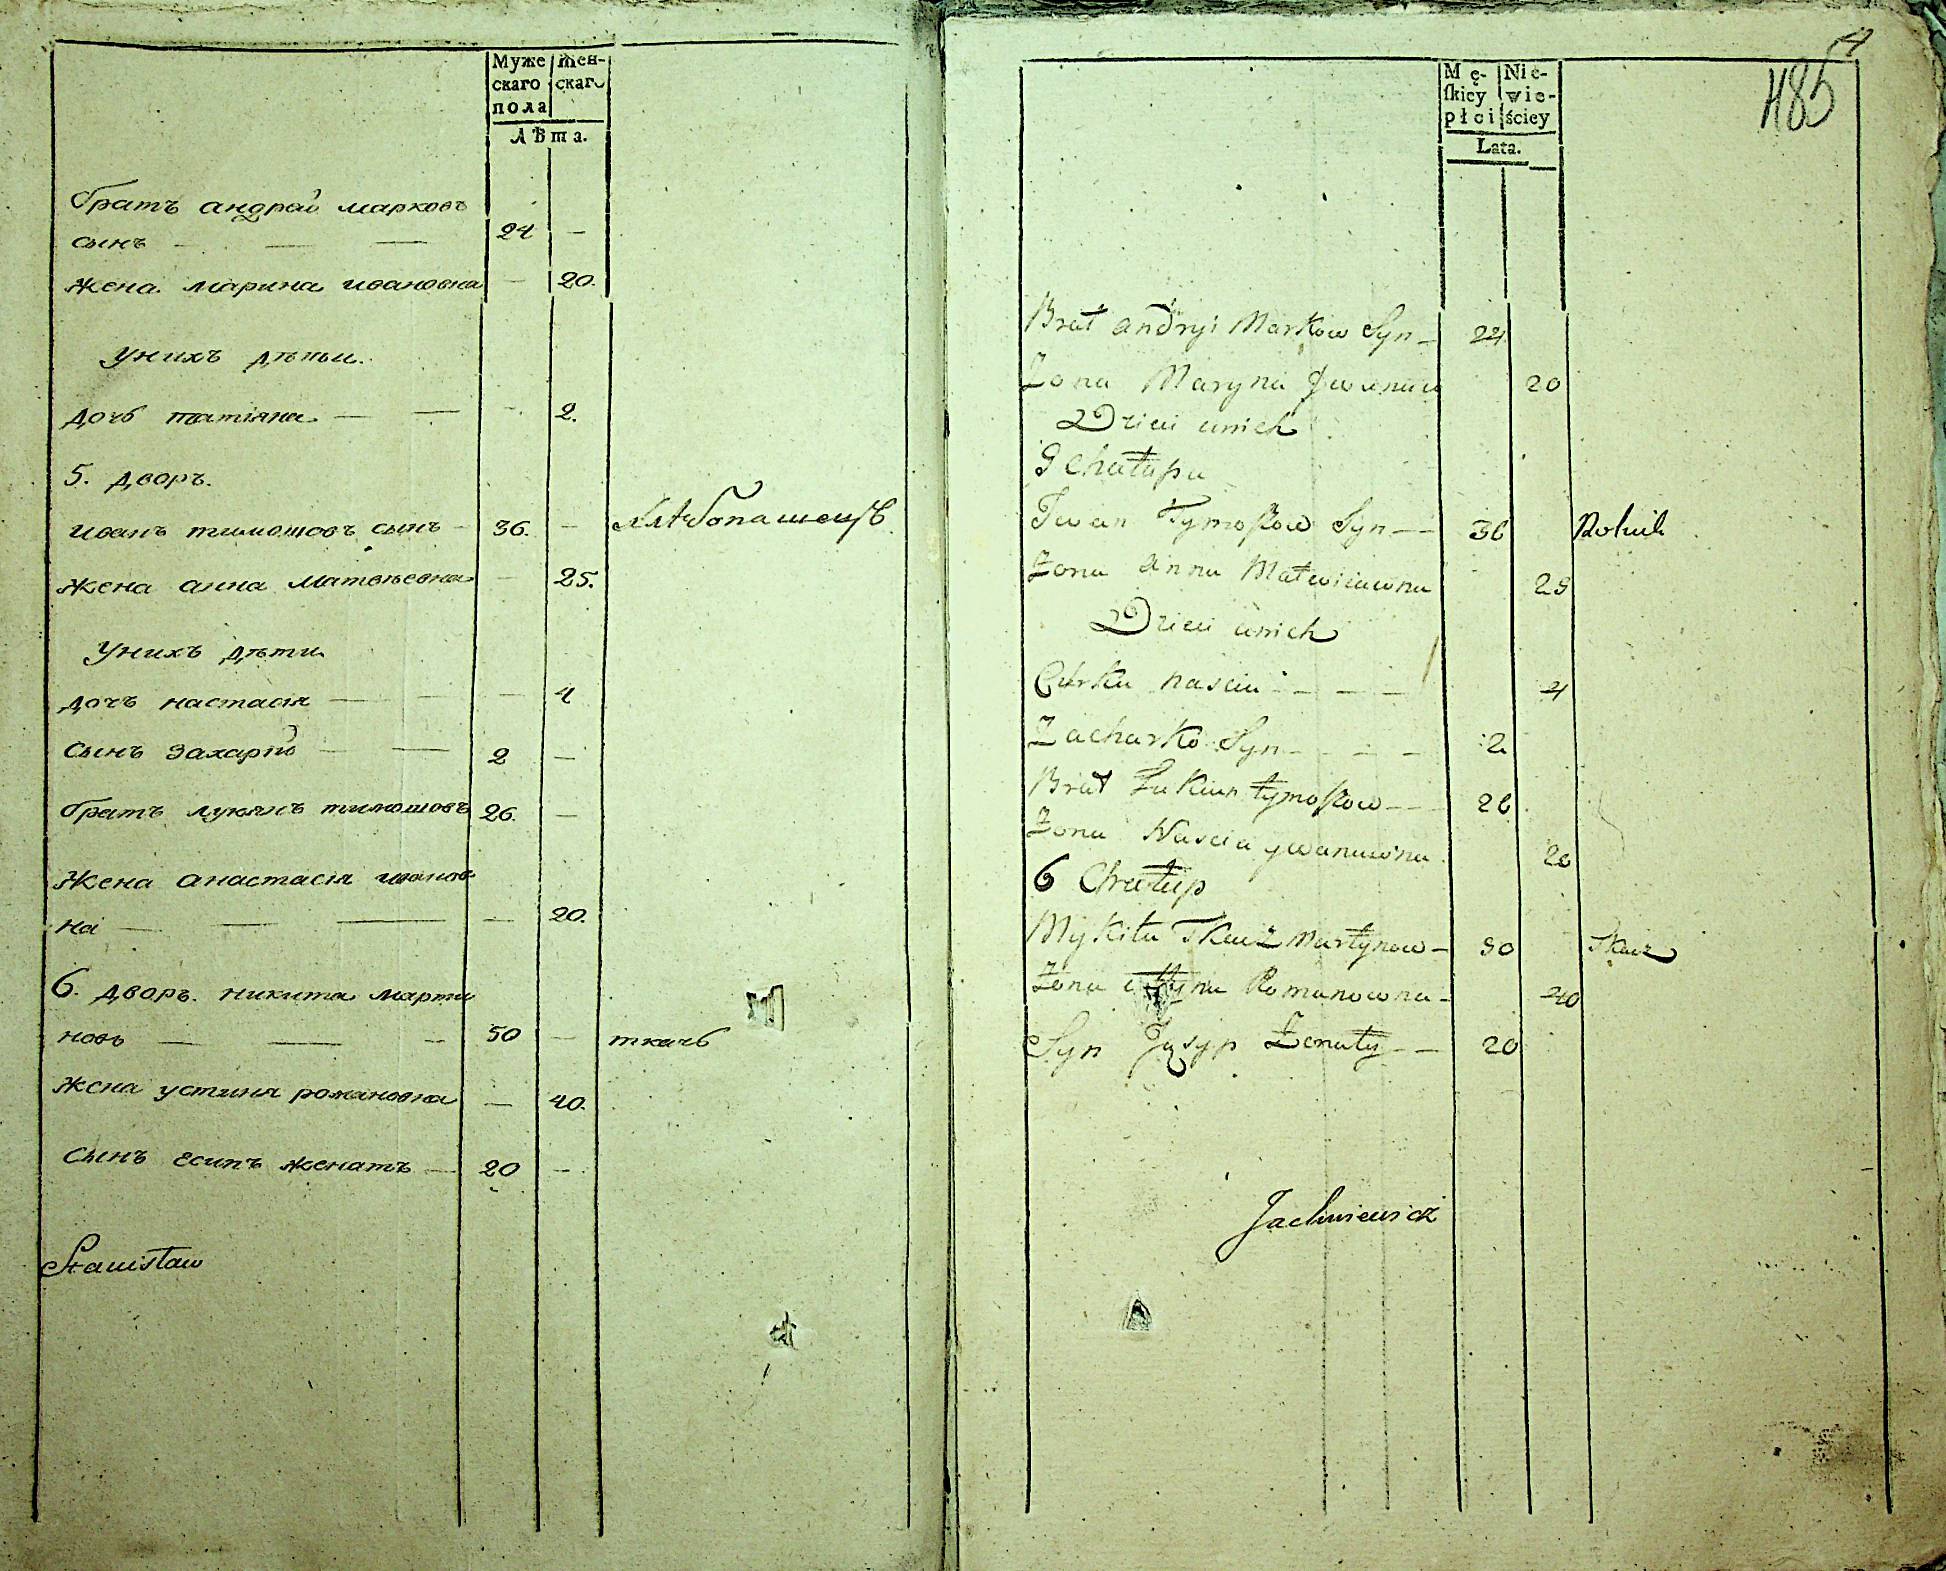 Муже
скаго
пола
Жен-
скаго
Лѣта.
братъ андрей марковъ
сынъ — — — 24 —
жена марина ивановна — 20.
унихъ дѣти.
дочь татіяна — — — 2.
5. дворъ.
иванъ тимошовъ сынъ — 36. — хлѣбопашецъ
жена анна матвѣевна — 25.
унихъ дѣти
дочъ настасія — — — 4
сынъ захарій — — 2 —
братъ лукянъ тимошовъ 26. —
жена анастасія иванов
на — — — — 20.
6. дворъ. никита марти
новъ — — — 50 — ткачь
жена устиня романовна — 40.
сынъ есипъ женатъ — 20 —
Stanisław
4
485
Mę-
skiey
płci
Nie-
wie-
ściey
Lata.
Brat andryi Markow Syn — 24
Żona Maryna 20
Dzieci unich
5 Chałupa
Iwan Tymoszow Syn — 36 Rolnik
Żona Anna Matwiiewna 25
Dzieci unich
Curka nascia — — — 4
Zacharko Syn — — — 2
Brat Łukian tymoszow — 26
Żona Nascia ywanuwna 20
6 Chałup
Mykita Tkacz Martynow — 50 Tkacz
Żona Romanowna — 40
Syn Jusyp Żenaty — 20
Jachniewicz